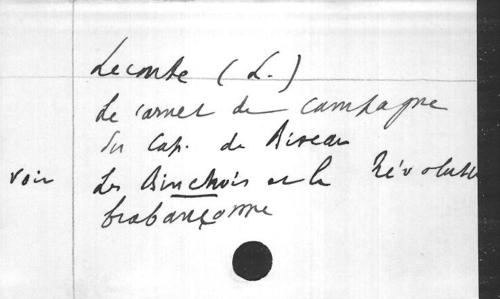 Leconte (L.)
Le carnet de campagne
du Cap. de Biseau
voir Les Binchois et la Révolution
brabançonne